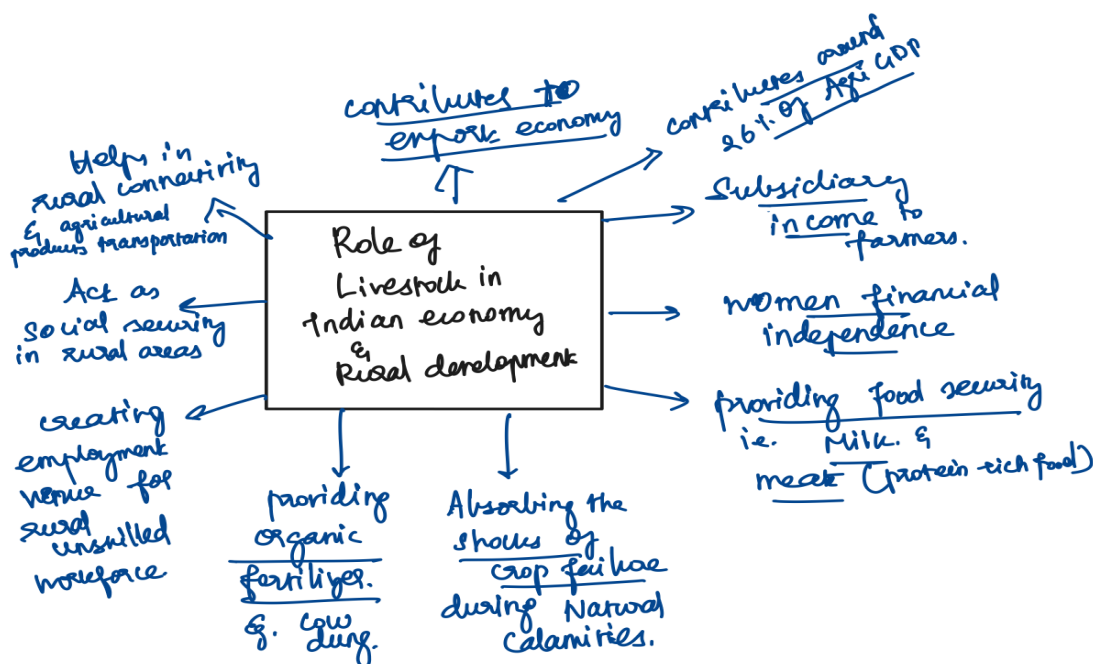 Role of
Livestock in
Indian economy
&
Rural development
contributes to
export economy
contributes around
26% of Agri GDP
Subsidiary
income to
farmers.
women financial
independence
providing food security
i.e. Milk &
meat (protein rich food)
Absorbing the
shocks of
crop failure
during Natural
Calamities.
providing
organic
fertilizer.
Eg. cow
dung.
creating
employment
venue for
rural
unskilled
workforce
Act as
social security
in rural areas
Helps in
rural connectivity
& agricultural
products transportation